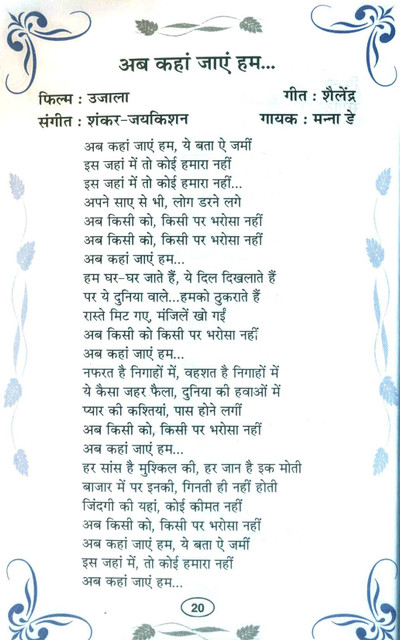 अब कहां जाएं हम...
फिल्म : उजाला गीत : शैलेंद्र
संगीत : शंकर-जयकिशन गायक : मन्ना डे
अब कहां जाएं हम, ये बता ऐ जमीं
इस जहां में तो कोई हमारा नहीं
इस जहां में तो कोई हमारा नहीं...
अपने साए से भी, लोग डरने लगे
अब किसी को, किसी पर भरोसा नहीं
अब किसी को, किसी पर भरोसा नहीं
अब कहां जाएं हम...
हम घर-घर जाते हैं, ये दिल दिखलाते हैं
पर ये दुनिया वाले...हमको ठुकराते हैं
रास्ते मिट गए, मंजिलें खो गईं
अब किसी को किसी पर भरोसा नहीं
अब कहां जाएं हम...
नफरत है निगाहों में, वहशत है निगाहों में
ये कैसा जहर फैला, दुनिया की हवाओं में
प्यार की कश्तियां, पास होने लगीं
अब किसी को, किसी पर भरोसा नहीं
अब कहां जाएं हम...
हर सांस है मुश्किल की, हर जान है इक मोती
बाजार में पर इनकी, गिनती ही नहीं होती
जिंदगी की यहां, कोई कीमत नहीं
अब किसी को, किसी पर भरोसा नहीं
अब कहां जाएं हम, ये बता ऐ जमीं
इस जहां में, तो कोई हमारा नहीं
अब कहां जाएं हम...
20